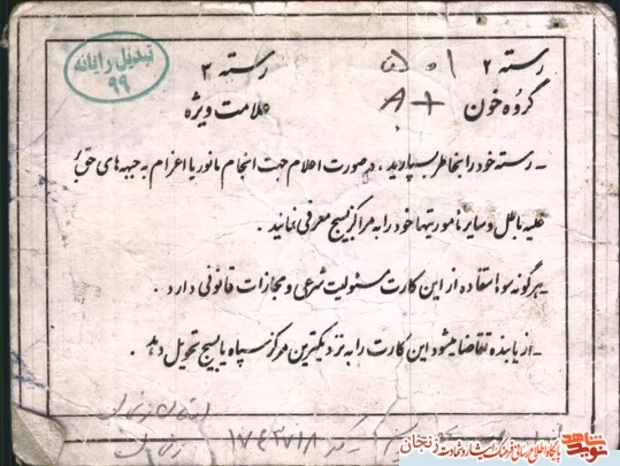 رسته ۲ ۵۰۱ رسته ۳
تبدیل رایانه
۹۹
گروه خون A+ علامت ویژه
ـ رسته خود را بخاطر بسپارید ، در صورت اعلام جهت انجام مانور یا اعزام به جبهه های حق بر
علیه باطل و سایر مأموریتها خود را به مراکز بسیج معرفی نمائید .
ـ هرگونه سوء استفاده از این کارت مسئولیت شرعی و مجازات قانونی دارد .
ـ از یابنده تقاضا میشود این کارت را به نزدیکترین مرکز سپاه یا بسیج تحویل دهد .
۱۷۴۳۷۱۸
نوید شاهد پایگاه اطلاع رسانی فرهنگ ایثار و شهادت زنجان